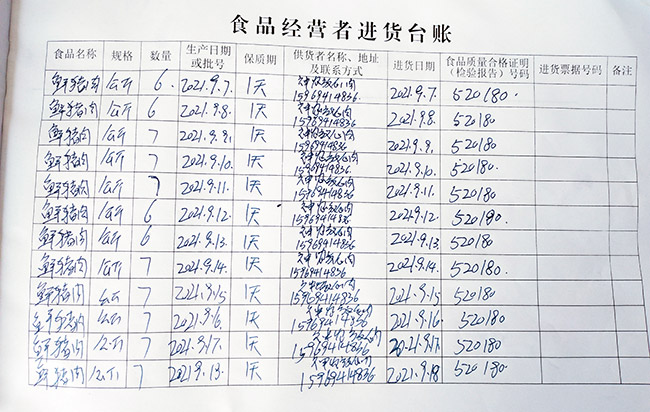 食品经营者进货台账
食品名称 规格 数量 生产日期或批号 保质期 供货者名称、地址及联系方式 进货日期 食品质量合格证明（检验报告）号码 进货票据号码 备注
鲜猪肉 公斤 6. 2021.9.7. 1天 15969414836 2021.9.7. 520180.
鲜猪肉 公斤 6 2021.9.8. 1天 15969414836 2021.9.8. 520180
鲜猪肉 公斤 7 2021.9.9. 1天 15969414836 2021.9.9. 520180
鲜猪肉 公斤 7 2021.9.10. 1天 15969414836 2021.9.10. 520180
鲜猪肉 公斤 7 2021.9.11. 1天 15969414836 2021.9.11. 520180
鲜猪肉 公斤 6 2021.9.12. 1天 15969414836 2021.9.12. 520180.
鲜猪肉 公斤 6 2021.9.13. 1天 15969414836 2021.9.13 520180
鲜猪肉 公斤 7 2021.9.14. 1天 15969414836 2021.9.14. 520180.
鲜猪肉 公斤 7 2021.9.15 1天 15969414836 2021.9.15 520180
鲜猪肉 公斤 7 2021.9.6. 1天 15969414836 2021.9.16. 520180
鲜猪肉 公斤 7 2021.9.17. 1天 15969414836 2021.9.17. 520180
鲜猪肉 公斤 7 2021.9.13. 1天 15969414836 2021.9.18 520180